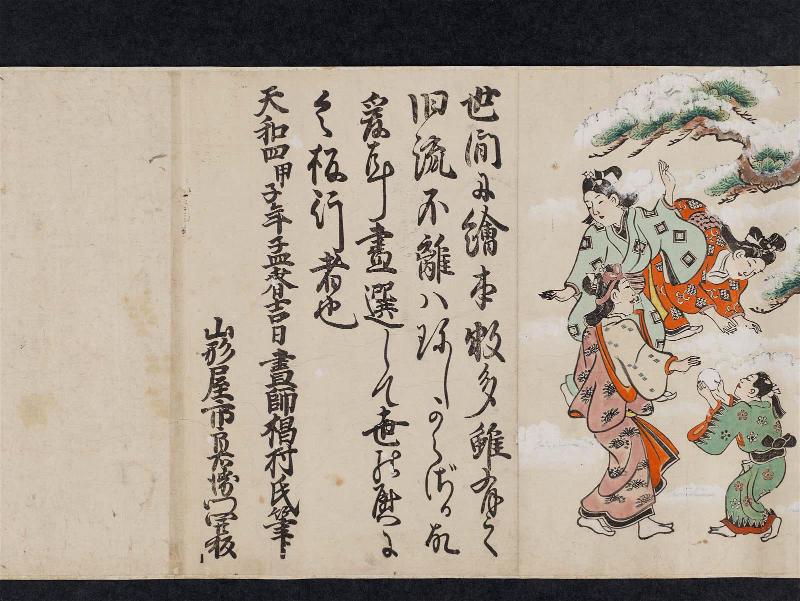 世間に繪本数多雖有之
旧流不離ハ珎しからざる故
爰に予畫選して世の慰に
令板行者也
天和四甲子年孟春吉日 畫師 村氏筆
山形屋市 兵衛 板